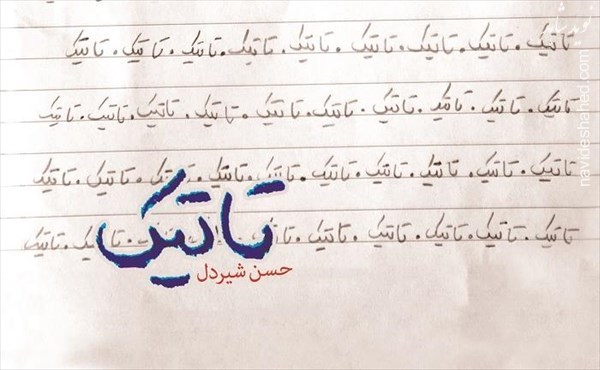 تاتیک . تاتیک . تاتیک . تاتیک . تاتیک . تاتیک . تاتیک . تاتیک . تاتیک
تاتیک . تاتیک . تاتیک . تاتیک . تاتیک . تاتیک . تاتیک . تاتیک . تاتیک . تاتیک
تاتیک . تاتیک . تاتیک . تاتیک . تاتیک . تاتیک . تاتیک . تاتیک . تاتیک . تاتیک
تاتیک . تاتیک . تاتیک . تاتیک . تاتیک . تاتیک . تاتیک
تاتیک
حسن شیردل
نوید شاهد
navideshahed.com